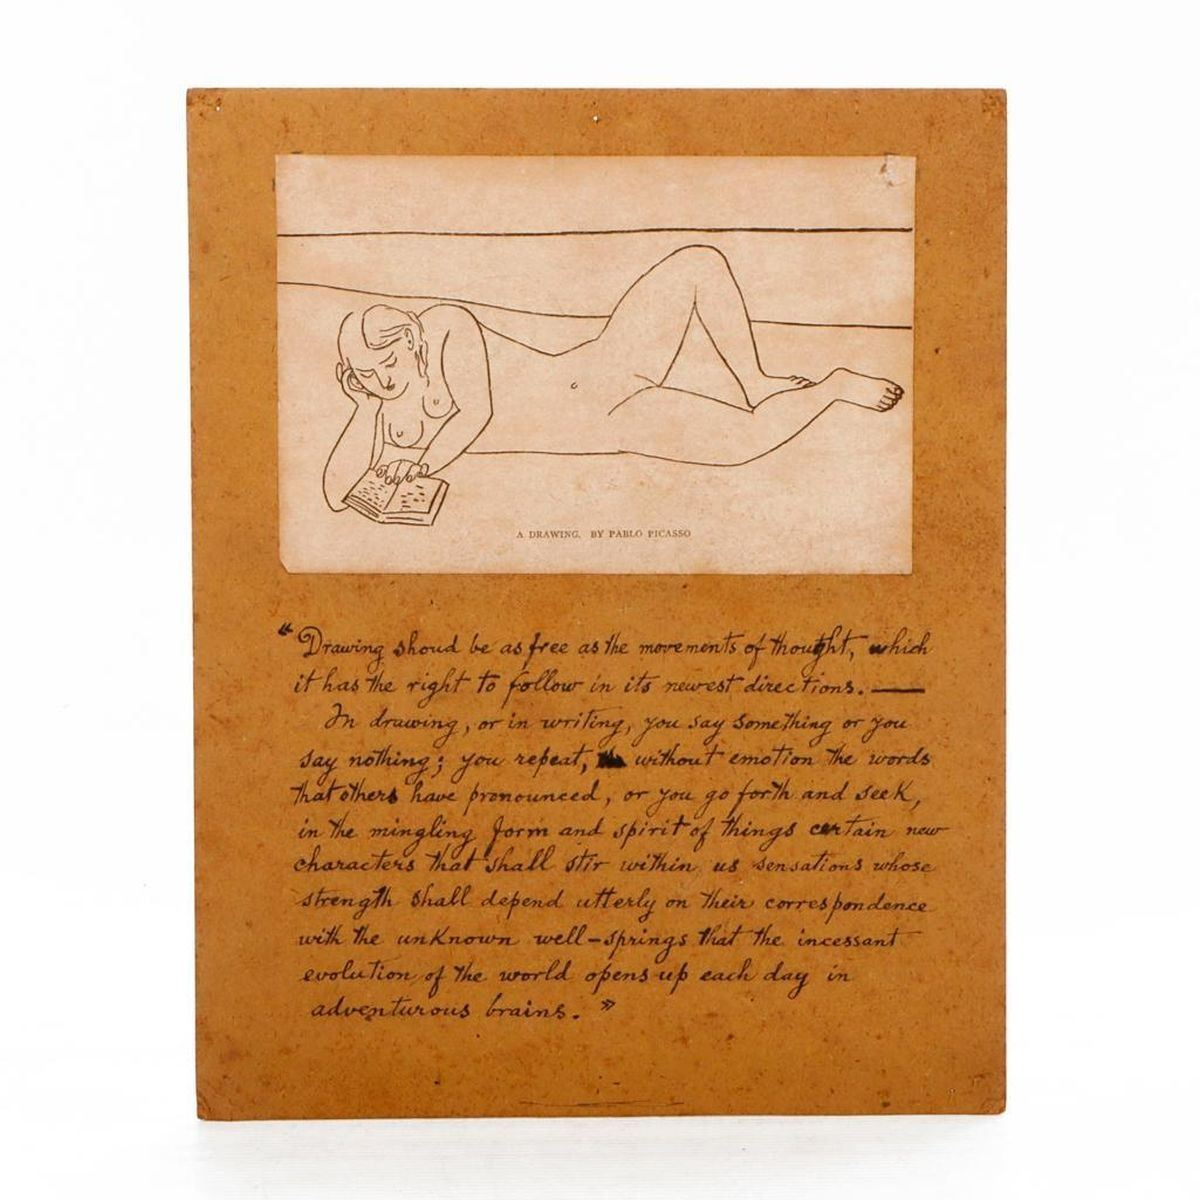 A DRAWING. BY PABLO PICASSO
“Drawing shoud be as free as the movements of thought, which
it has the right to follow in its newest directions. —
In drawing, or in writing, you say something or you
say nothing; you repeat, without emotion the words
that others have pronounced, or you go forth and seek,
in the mingling form and spirit of things certain new
characters that shall stir within us sensations whose
strength shall depend utterly on their correspondence
with the unknown well-springs that the incessant
evolution of the world opens up each day in
adventurous brains. ”